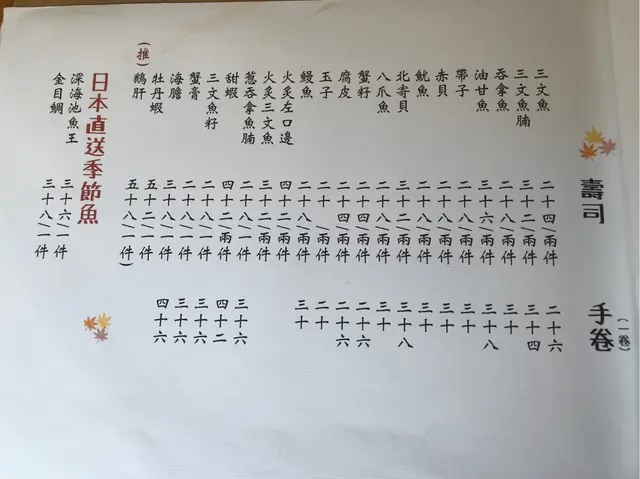 壽司 手卷(一卷)
三文魚 二十四/兩件 二十六
三文魚腩 三十二/兩件 三十四
吞拿魚 二十八/兩件 三十
油甘魚 三十六/兩件 三十八
帶子 二十八/兩件 三十
赤貝 二十八/兩件 三十
魷魚 二十八/兩件 三十
北寄貝 三十二/兩件 三十八
八爪魚 二十八/兩件 三十
蟹籽 二十四/兩件 二十六
腐皮 二十四/兩件 二十六
玉子 二十/兩件 二十
鰻魚 二十八/兩件 三十
火炙左口邊 四十二/兩件
火炙三文魚 三十二/兩件
蔥吞拿魚腩 二十八/兩件
甜蝦 四十二/兩件 三十六
三文魚籽 二十八/一件 四十二
蟹膏 二十八/一件 三十六
海膽 三十八/一件 三十六
牡丹蝦 五十二/一件 四十六
(推)鵝肝 五十八/一件)
日本直送季節魚
深海池魚王 三十六/一件
金目鯛 三十八/一件